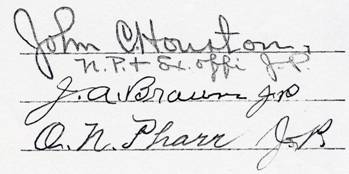 John C. Houston,
N.P. + Ex. offi J.P.
J. A. Braun J.P
O. N. Pharr J.P